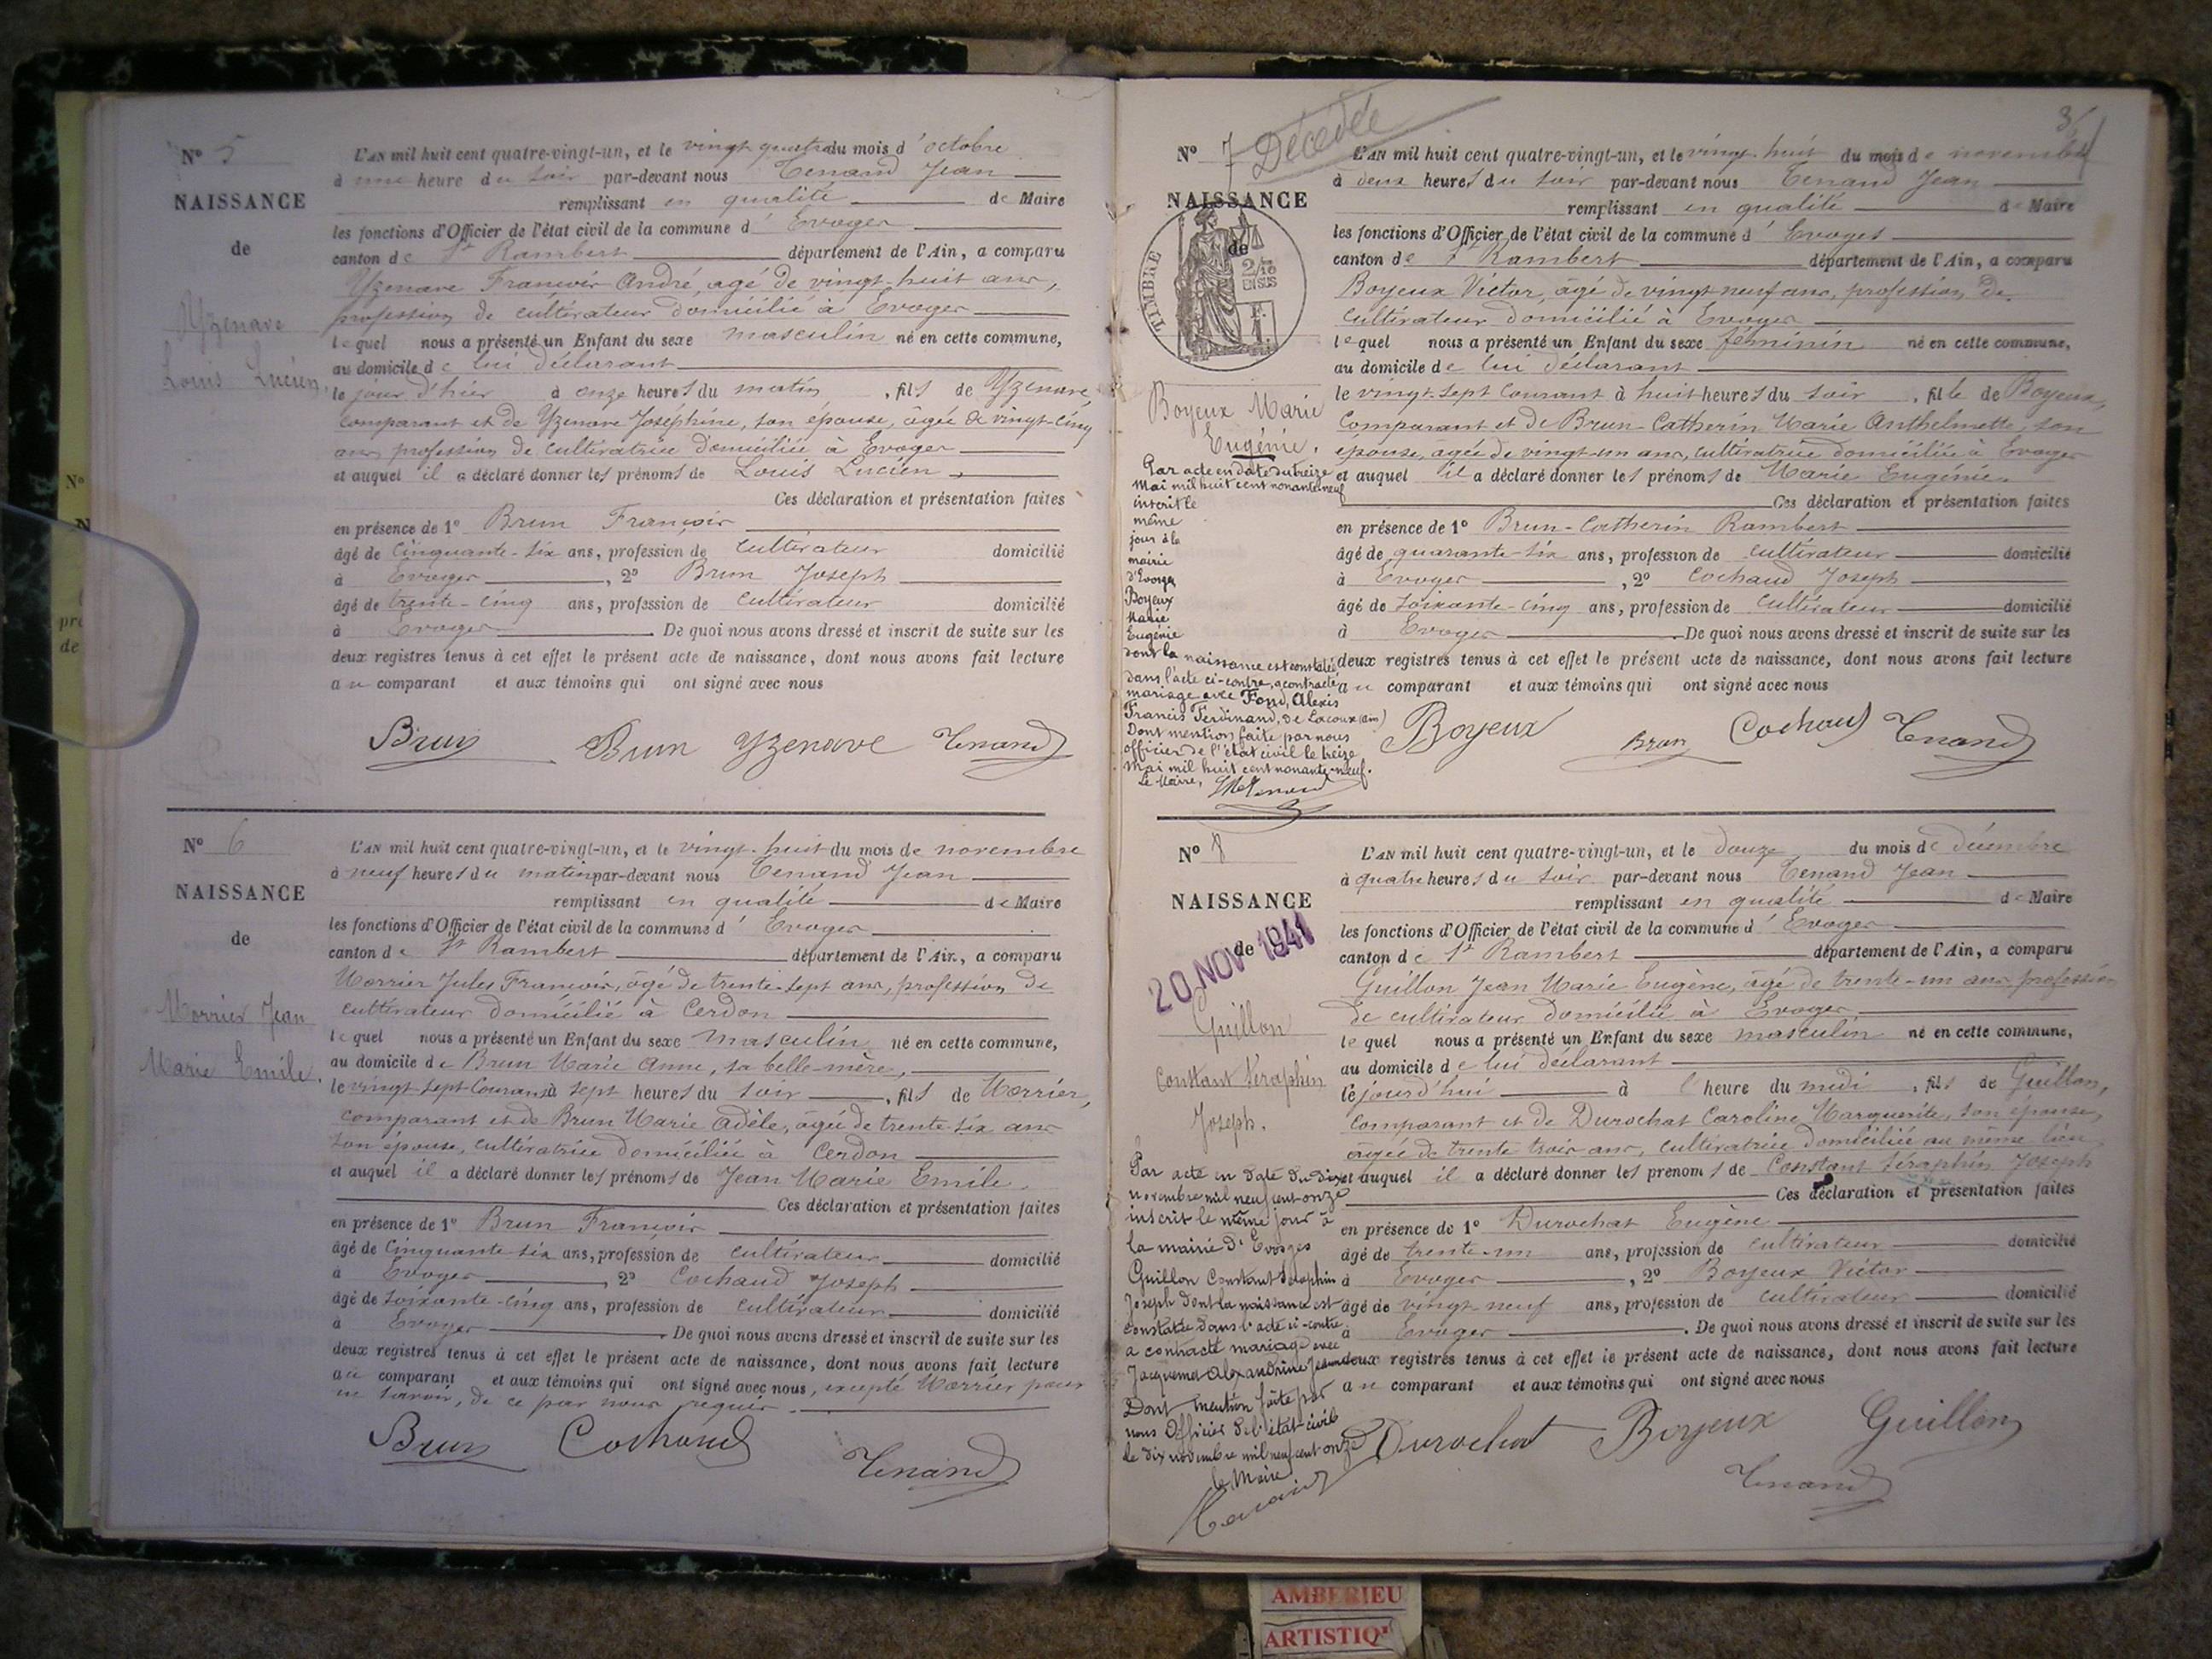 N° 5
NAISSANCE
de
Yzenave
Louis Lucien.
L'AN mil huit cent quatre-vingt-un, et le vingt quatre du mois d'octobre
à une heure du soir par-devant nous Tenand Jean
remplissant en qualité de Maire
les fonctions d'Officier de l'état civil de la commune d'Evoges
canton de St Rambert département de l'Ain, a comparu
Yzenave François André, agé de vingt-huit ans,
profession de cultivateur domicilié à Evoges
lequel nous a présenté un Enfant du sexe masculin né en cette commune,
au domicile de lui déclarant
le jour d'hier à onze heures du matin, fils de Yzenave,
comparant et de Yzenave Joséphine, son épouse, âgée de vingt-cinq
ans profession de cultivatrice domiciliée à Evoges
et auquel il a déclaré donner les prénoms de Louis Lucien.
Ces déclaration et présentation faites
en présence de 1° Brun François
âgé de cinquante-six ans, profession de cultivateur domicilié
à Evoges, 2° Brun Joseph
âgé de trente-cinq ans, profession de cultivateur domicilié
à Evoges. De quoi nous avons dressé et inscrit de suite sur les
deux registres tenus à cet effet le présent acte de naissance, dont nous avons fait lecture
au comparant et aux témoins qui ont signé avec nous
Brun Brun Yzenave Tenand
N° 6
NAISSANCE
de
Morrier Jean
Marie Emile.
L'AN mil huit cent quatre-vingt-un, et le vingt-huit du mois de novembre
à neuf heures du matin par-devant nous Tenand Jean
remplissant en qualité de Maire
les fonctions d'Officier de l'état civil de la commune d'Evoges
canton de St Rambert département de l'Ain, a comparu
Morrier Jules François, âgé de trente-sept ans, profession de
cultivateur domicilié à Cerdon
lequel nous a présenté un Enfant du sexe masculin né en cette commune,
au domicile de Brun Marie Anne, sa belle-mère,
le vingt-sept courant à sept heures du soir, fils de Morrier,
comparant et de Brun Marie Adèle, âgée de trente-six ans
son épouse, cultivatrice domiciliée à Cerdon
et auquel il a déclaré donner les prénoms de Jean Marie Emile.
Ces déclaration et présentation faites
en présence de 1° Brun François
âgé de cinquante-six ans, profession de cultivateur domicilié
à Evoges, 2° Cochaud Joseph
âgé de soixante-cinq ans, profession de cultivateur domicilié
à Evoges. De quoi nous avons dressé et inscrit de suite sur les
deux registres tenus à cet effet le présent acte de naissance, dont nous avons fait lecture
au comparant et aux témoins qui ont signé avec nous, excepté Morrier pour
ne savoir, de ce par nous requis.
Brun Cochaud Tenand
3
N° 7 Décédée
NAISSANCE
de
TIMBRE
2/10
EN SUS
Boyeux Marie
Eugénie.
Par acte en date du treize
Mai mil huit cent nonante-neuf
inscrit le
même
jour à la
mairie
d'Evoges
Boyeux
Marie
Eugénie
dont la naissance est constatée
dans l'acte ci-contre, a contracté
mariage avec Fond, Alexis
Francis Ferdinand, de Lacoux (Ain)
Dont mention faite par nous
officier de l'état civil le treize
Mai mil huit cent nonante-neuf.
Le Maire,
L'AN mil huit cent quatre-vingt-un, et le vingt-huit du mois de novembre
à deux heures du soir par-devant nous Tenand Jean
remplissant en qualité de Maire
les fonctions d'Officier de l'état civil de la commune d'Evoges
canton de St Rambert département de l'Ain, a comparu
Boyeux Victor, âgé de vingt-neuf ans, profession de
cultivateur domicilié à Evoges
lequel nous a présenté un Enfant du sexe féminin né en cette commune,
au domicile de lui déclarant
le vingt-sept courant à huit heures du soir, fille de Boyeux,
comparant et de Brun-Catherin Marie Anthelmette, son
épouse, âgée de vingt-un ans, cultivatrice domiciliée à Evoges
et auquel il a déclaré donner les prénoms de Marie Eugénie.
Ces déclaration et présentation faites
en présence de 1° Brun-Catherin Rambert
âgé de quarante-six ans, profession de cultivateur domicilié
à Evoges, 2° Cochaud Joseph
âgé de soixante-cinq ans, profession de cultivateur domicilié
à Evoges. De quoi nous avons dressé et inscrit de suite sur les
deux registres tenus à cet effet le présent acte de naissance, dont nous avons fait lecture
au comparant et aux témoins qui ont signé avec nous
Boyeux Brun Cochaud Tenand
N° 8
NAISSANCE
de
20 NOV 1941
Guillon
Constant Séraphin
Joseph.
Par acte en date du dix
novembre mil neuf cent onze
inscrit le même jour à
la mairie d'Evosges
Guillon Constant Séraphin
Joseph dont la naissance est
constatée dans l'acte ci-contre
a contracté mariage avec
Jacquemet Alexandrine Jeanne
Dont mention faite par
nous Officier de l'état-civil
le dix novembre mil neuf cent onze
Le Maire
Tenand
L'AN mil huit cent quatre-vingt-un, et le douze du mois de décembre
à quatre heures du soir par-devant nous Tenand Jean
remplissant en qualité de Maire
les fonctions d'Officier de l'état civil de la commune d'Evoges
canton de St Rambert département de l'Ain, a comparu
Guillon Jean Marie Eugène, âgé de trente-un ans profession
de cultivateur domicilié à Evoges
lequel nous a présenté un Enfant du sexe masculin né en cette commune,
au domicile de lui déclarant
le jourd'hui à l'heure du midi, fils de Guillon,
comparant et de Durochat Caroline Marguerite, son épouse,
âgée de trente trois ans, cultivatrice domiciliée au même lieu
et auquel il a déclaré donner les prénoms de Constant Séraphin Joseph
Ces déclaration et présentation faites
en présence de 1° Durochat Eugène
âgé de trente-un ans, profession de cultivateur domicilié
à Evoges, 2° Boyeux Victor
âgé de vingt-neuf ans, profession de cultivateur domicilié
à Evoges. De quoi nous avons dressé et inscrit de suite sur les
deux registres tenus à cet effet le présent acte de naissance, dont nous avons fait lecture
au comparant et aux témoins qui ont signé avec nous
Durochat Boyeux Guillon
Tenand
AMBERIEU
ARTISTIQ